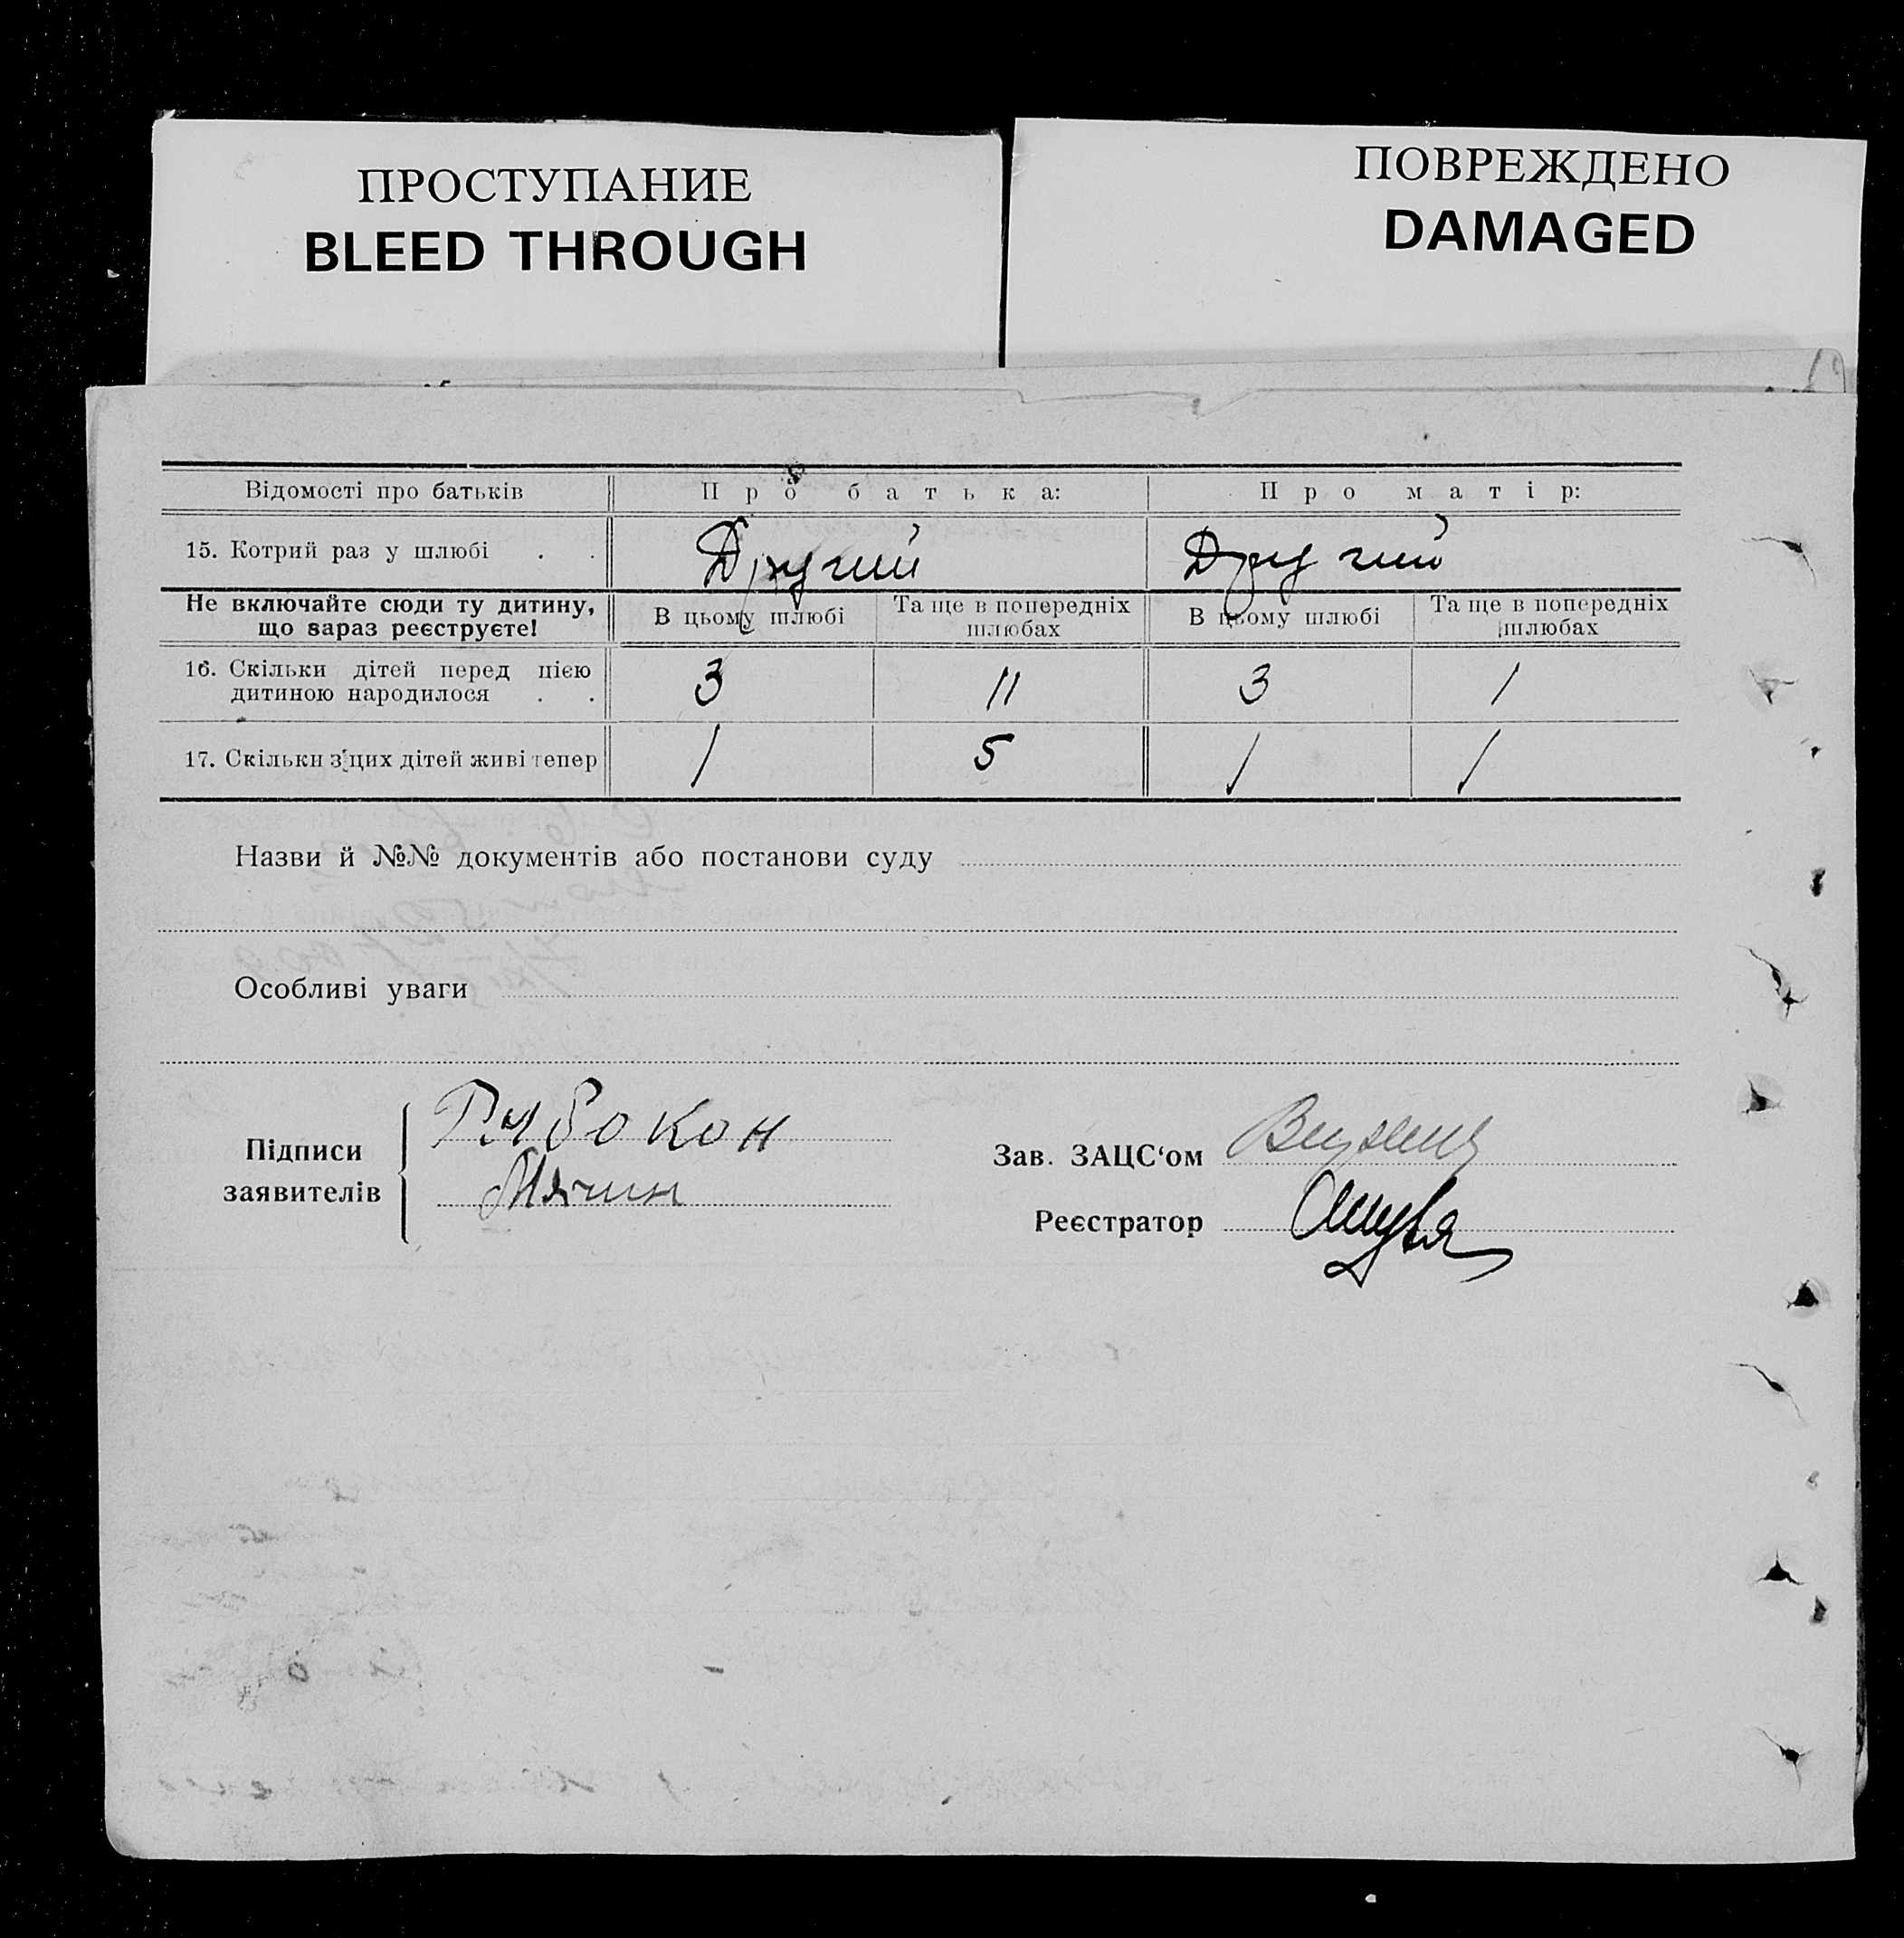 ПРОСТУПАНИЕ
BLEED THROUGH
ПОВРЕЖДЕНО
DAMAGED
Відомості про батьків Про батька: Про матір:
15. Котрий раз у шлюбі . . Другий Другий
Не включайте сюди ту дитину, що зараз реєструєте! В цьому шлюбі Та ще в попередніх шлюбах В цьому шлюбі Та ще в попередніх шлюбах
16. Скільки дітей перед цією
дитиною народилося . . 3 11 3 1
17. Скільки з цих дітей живі тепер 1 5 1 1
Назви й №№ документів або постанови суду
Особливі уваги
Підписи
заявителів
Зав. ЗАЦС‘ом
Реєстратор